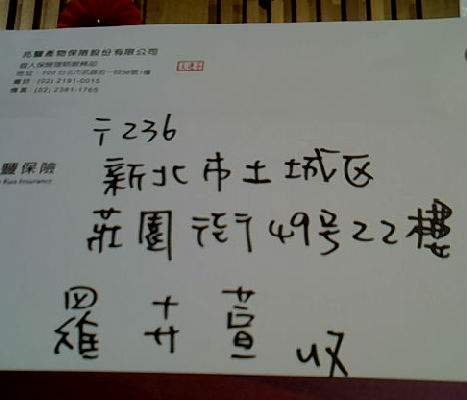 兆豐產物保險股份有限公司
個人保險理賠服務部
電話：(02) 2191-0015
傳真：(02) 2381-1765
豐保險
Kuo Insurance
〒236
新北市土城区
莊園街49号22樓
羅廿萱 收